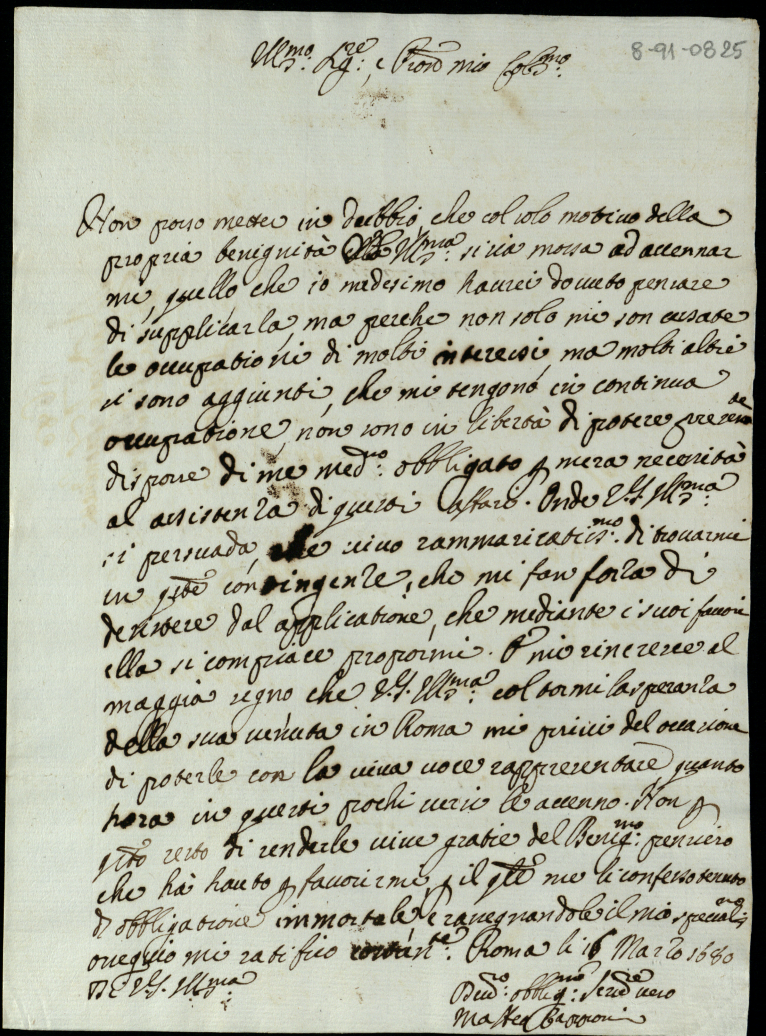 8-91-0825
Ill.mo Sig.re, e Pron mio Col.mo
Non posso metter in dubbio che col solo motivo della
propria benignità V.S. Ill.ma si sia mossa ad accennar
mi, quello che io medesimo haurei douuto pensare
di supplicarla, ma perche non solo mi son cessate
le occupationi di molti interessi, ma molti altri
si sono aggiunti, che mi tengono in continua
occupatione, non sono in libertà di potere
disporre di me med.mo obbligato p mera necessità
al assistenza di questi affari. Onde V.S. Ill.ma
si persuada, che uiuo rammaricatiss.mo di trouarmi
in q.te contingenze, che mi fan forza di
desistere dal applicatione, che mediante i suoi fauori
ella si compiace propormi. E mi rincresce al
maggior segno che V.S. Ill.ma col tormi la speranza
della sua uenuta in Roma mi priui del occasione
di poterle con la uiua uoce rappresentare quanto
hora in questi pochi uersi le accenno. Non p
q.to resto di renderle uiue gratie del Benig.mo pensiero
che hà hauto p fauorirmi, p il q.le me li confesso tenuto
d'obbligatione immortale, e rassegnandole il mio
ossequio mi ratifico Roma li 16 Marzo 1680
Di V.S. Ill.ma
obblig.mo Ser.re uero
Matteo